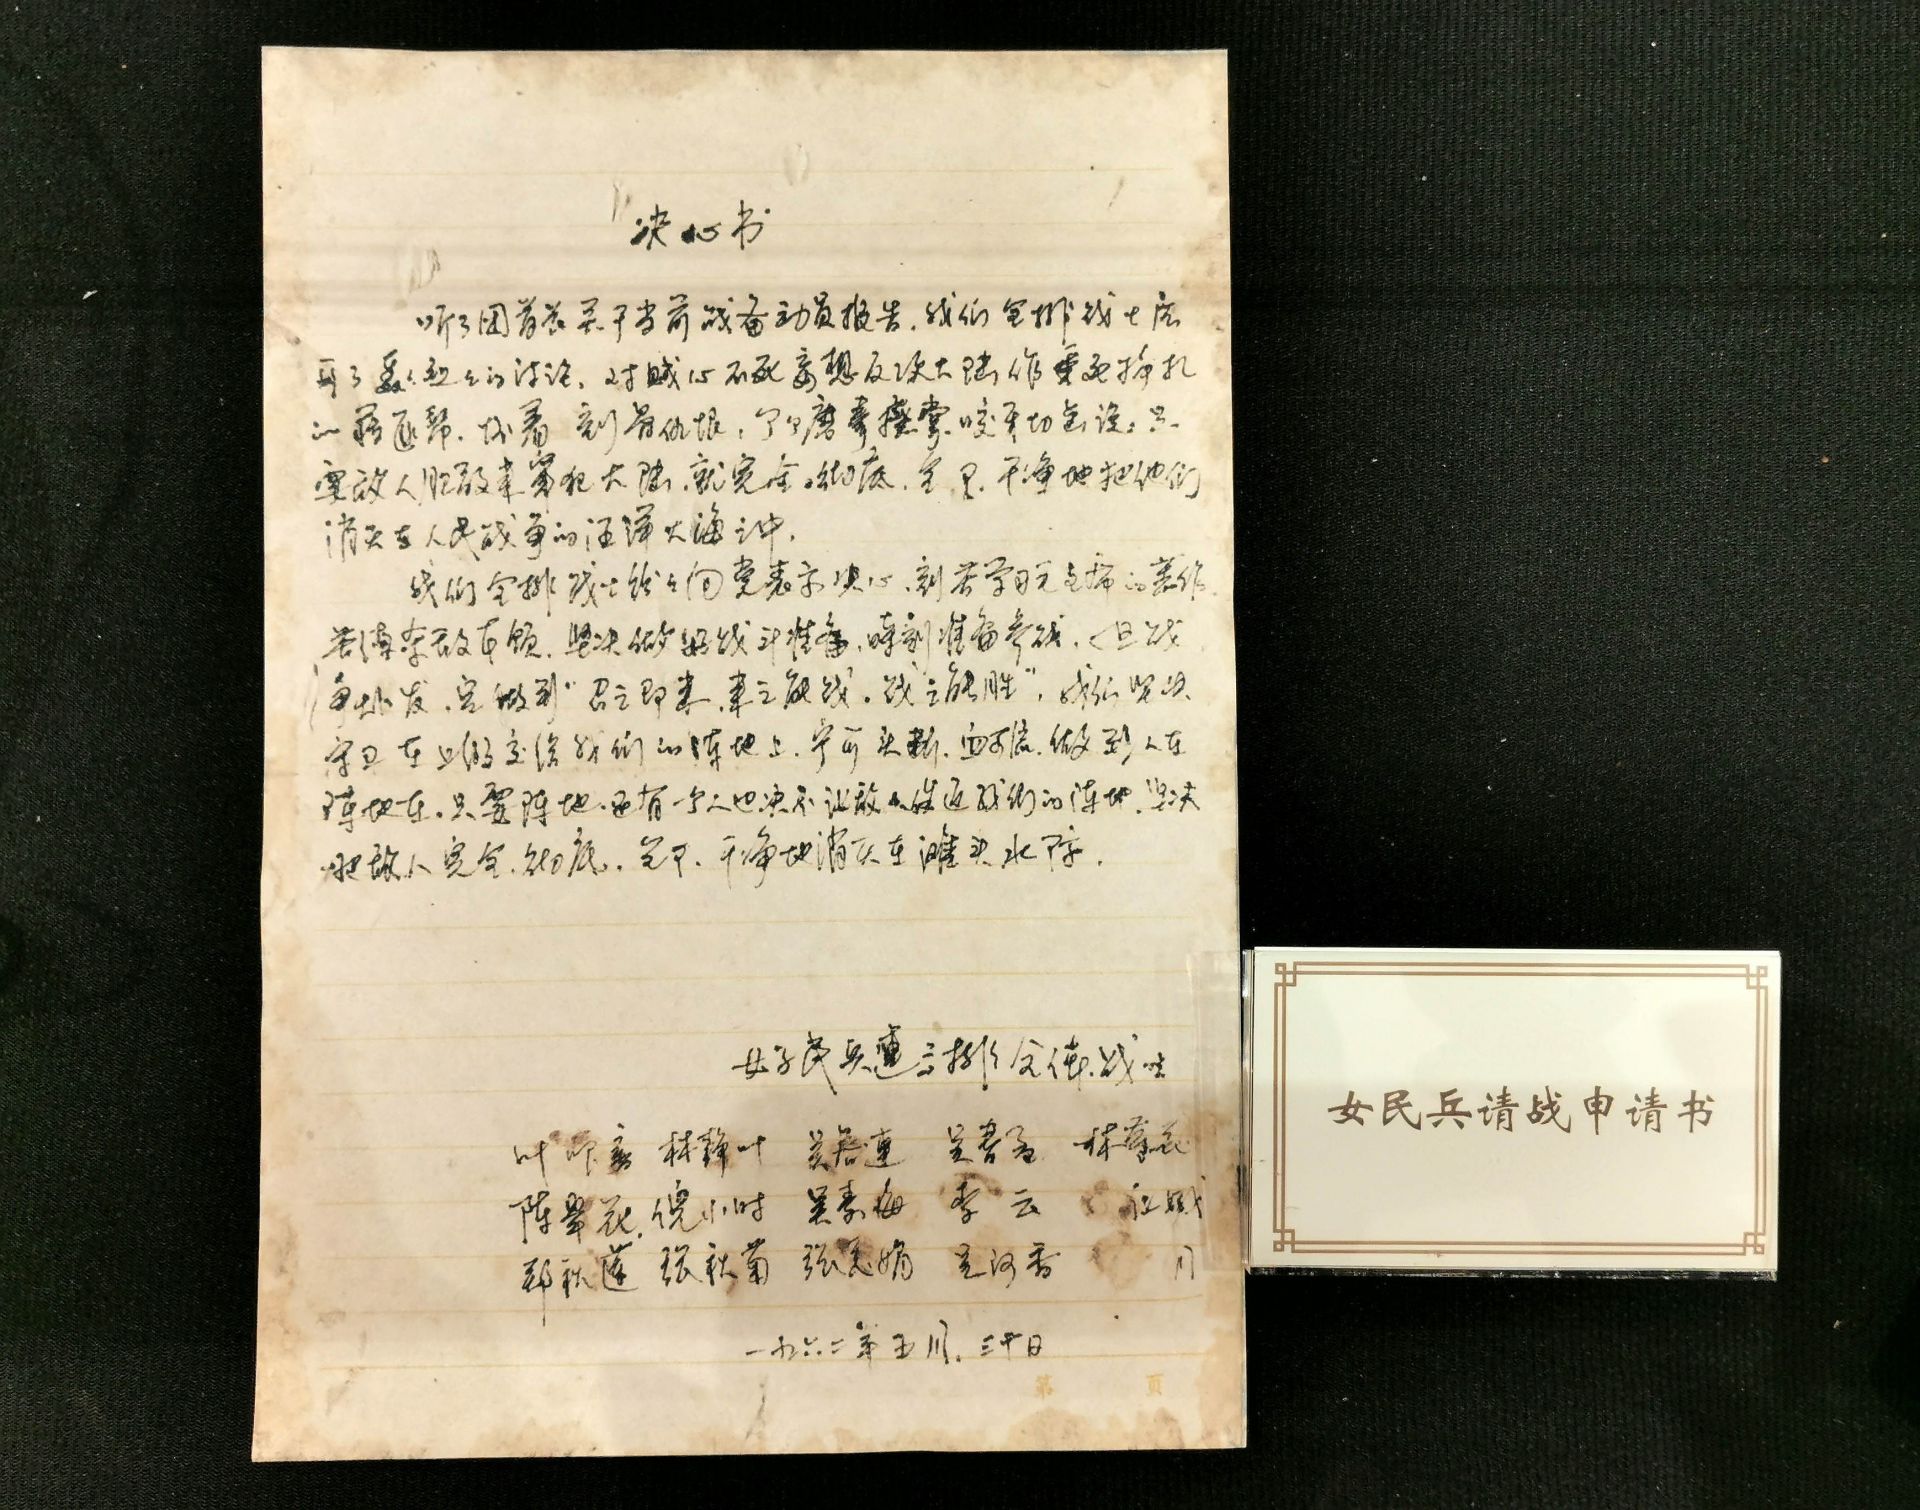 决心书
听了团首长关于当前战备动员报告，我们全排战士展
开了轰轰烈烈的讨论，对贼心不死妄想反攻大陆作垂死挣扎
的蒋匪帮，怀着刻骨仇恨，个个磨拳擦掌，咬牙切齿说：只
要敌人胆敢来窜犯大陆，就完全、彻底、全部、干净地把他们
消灭在人民战争的汪洋大海之中。
我们全排战士纷纷向党表示决心，刻苦学习毛主席的著作，
苦练杀敌本领，坚决做好战斗准备，时刻准备参战，一旦战
争爆发，定做到“召之即来，来之能战，战之能胜”，我们坚决
守卫在上级交给我们的阵地上，宁可头断，血可流，做到人在
阵地在，只要阵地还有一个人也决不让敌人侵近我们的阵地，坚决
把敌人完全、彻底、全部、干净地消灭在滩头水际。
女子民兵连三排全体战士
叶 林静叶 吴 连 吴 林 花
陈翠花 倪小时 吴素梅 李云
郑秋莲 张秋菊 张 娟 香 月
一九六二年五月三十日
第 页
女民兵请战申请书